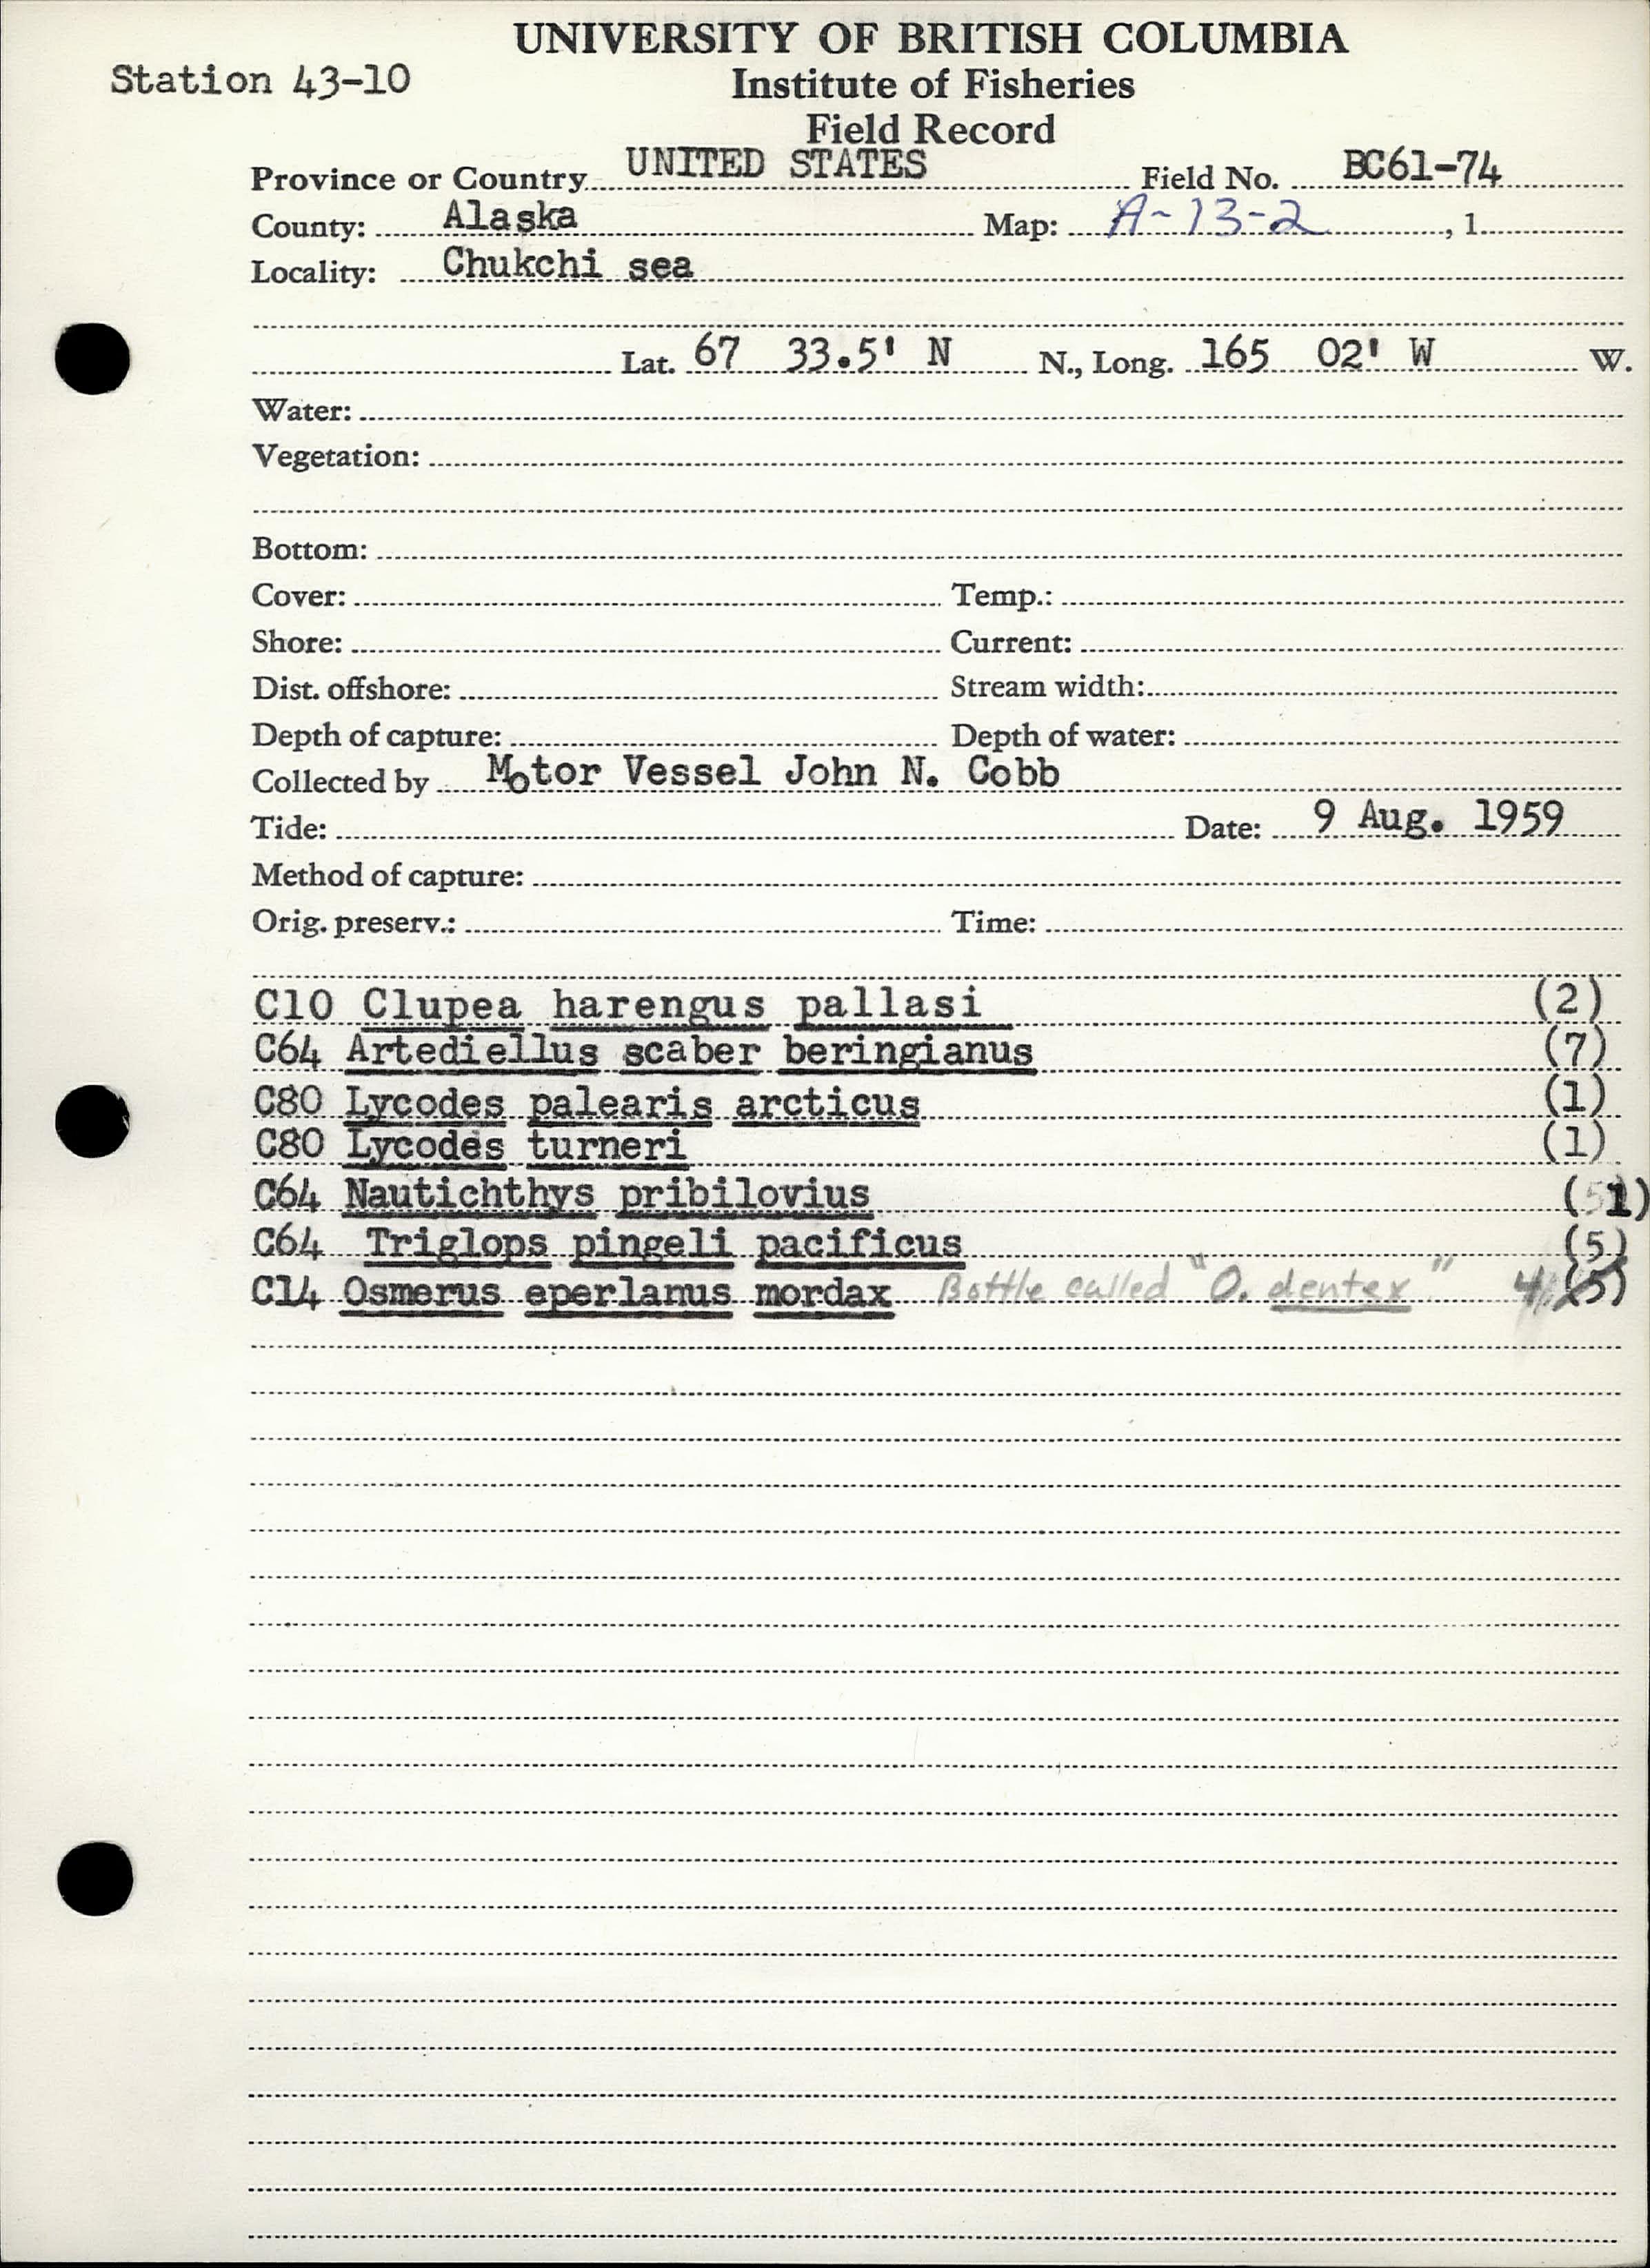 UNIVERSITY OF BRITISH COLUMBIA
Station 43-10
Institute of Fisheries
Field Record
Province or Country UNITED STATES Field No. BC61-74
County: Alaska Map: A-13-2 , 1
Locality: Chukchi sea
Lat. 67 33.5' N N., Long. 165 02' W W.
Water:
Vegetation:
Bottom:
Cover: Temp.:
Shore: Current:
Dist. offshore: Stream width:
Depth of capture: Depth of water:
Collected by Motor Vessel John N. Cobb
Tide: Date: 9 Aug. 1959
Method of capture:
Orig. preserv.: Time:
C10 Clupea harengus pallasi (2)
C64 Artediellus scaber beringianus (7)
C80 Lycodes palearis arcticus (1)
C80 Lycodes turneri (1)
C64 Nautichthys pribilovius (1)
C64 Triglops pingeli pacificus (5)
C14 Osmerus eperlanus mordax Bottle called "O. dentex." 4 (5)